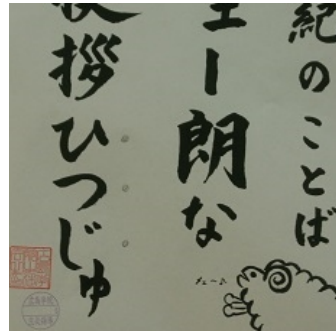 紀のことば
ェー朗な
挨拶ひつじゅ